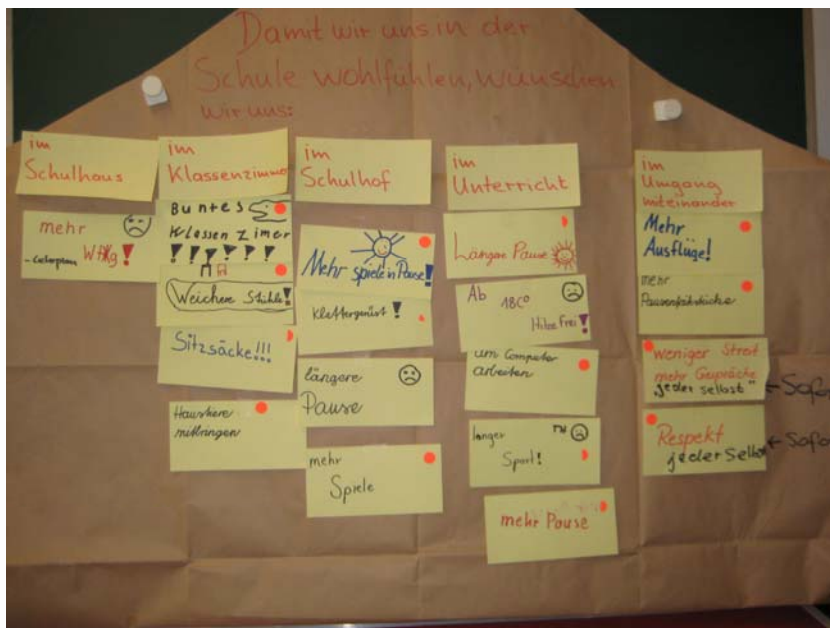 Damit wir uns in der
Schule wohlfühlen, wünschen
wir uns:
im
Schulhaus
mehr
im
Klassenzimmer
Buntes
Klassen Zimer
!!!!!!
Weichere Stühle!
Sitzsäcke!!!
Haustiere
mitbringen
im
Schulhof
Mehr spiele in Pause!
Klettergerüst!
längere
Pause
mehr
Spiele
im
Unterricht
Längere Pause
Ab 18C°
Hitze Frei!
am Computer
arbeiten
langer
Sport!
mehr Pause
im
Umgang
miteinander
Mehr
Ausflüge!
mehr
weniger Streit
mehr Gespräche
"jeder selbst" ← Sofo
Respekt ← Sofo
jeder Selbst